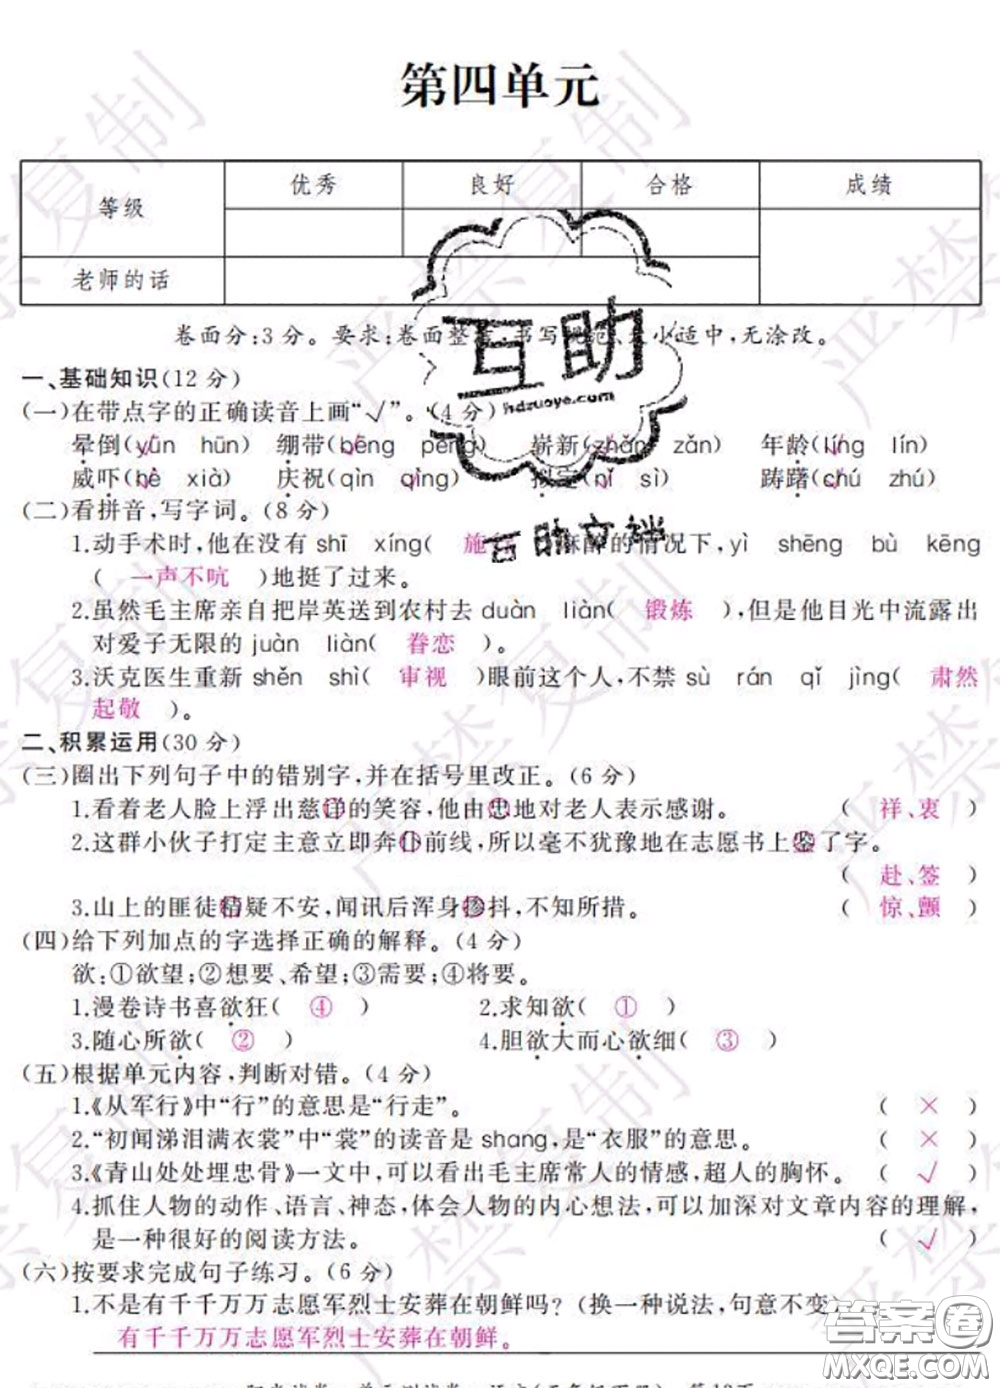 第四单元
等级 优秀 良好 合格 成绩
老师的话
卷面分:3分。要求:卷面整 书写 小适中,无涂改。
互助
hdzuoye.com
百助文档
一、基础知识(12分)
(一)在带点字的正确读音上画“√”。(4分)
晕倒(yūn hūn) 绷带(bēng pēng) 崭新(zhǎn zǎn) 年龄(líng lín)
威吓(hè xià) 庆祝(qìn qìng) (nǐ sì) 踌躇(chú zhú)
(二)看拼音,写字词。(8分)
1.动手术时,他在没有 shī xíng( 施 麻醉的情况下,yì shēng bù kēng
( 一声不吭 )地挺了过来。
2.虽然毛主席亲自把岸英送到农村去 duàn liàn( 锻炼 ),但是他目光中流露出
对爱子无限的 juàn liàn( 眷恋 )。
3.沃克医生重新 shěn shì( 审视 )眼前这个人,不禁 sù rán qǐ jìng( 肃然
起敬 )。
二、积累运用(30分)
(三)圈出下列句子中的错别字,并在括号里改正。(6分)
1.看着老人脸上浮出慈洋的笑容,他由忠地对老人表示感谢。 ( 祥、衷 )
2.这群小伙子打定主意立即奔仆前线,所以毫不犹豫地在志愿书上鉴了字。
( 赴、签 )
3.山上的匪徒精疑不安,闻讯后浑身掺抖,不知所措。 ( 惊、颤 )
(四)给下列加点的字选择正确的解释。(4分)
欲:①欲望;②想要、希望;③需要;④将要。
1.漫卷诗书喜欲狂( ④ ) 2.求知欲( ① )
3.随心所欲( ② ) 4.胆欲大而心欲细( ③ )
(五)根据单元内容,判断对错。(4分)
1.《从军行》中“行”的意思是“行走”。 ( × )
2.“初闻涕泪满衣裳”中“裳”的读音是 shang,是“衣服”的意思。 ( × )
3.《青山处处埋忠骨》一文中,可以看出毛主席常人的情感,超人的胸怀。 ( √ )
4.抓住人物的动作、语言、神态,体会人物的内心想法,可以加深对文章内容的理解,
是一种很好的阅读方法。 ( √ )
(六)按要求完成句子练习。(6分)
1.不是有千千万万志愿军烈士安葬在朝鲜吗?(换一种说法,句意不变
有千千万万志愿军烈士安葬在朝鲜。
答案圈
MXQE.COM
严禁复制